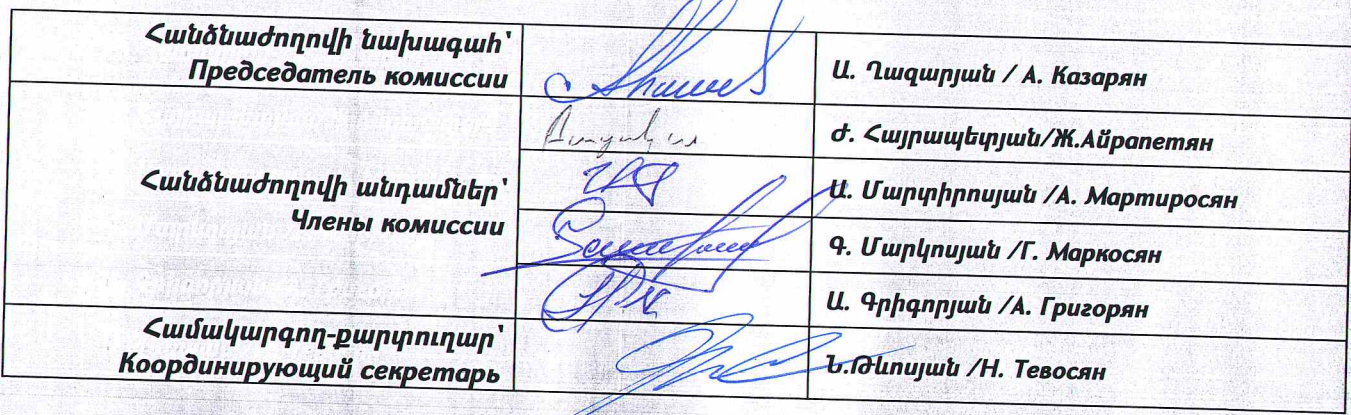 Հանձնաժողովի նախագահ՝
Председатель комиссии
Ա. Ղազարյան / А. Казарян
Ժ. Հայրապետյան/Ж.Айрапетян
Հանձնաժողովի անդամներ՝
Члены комиссии
Ա. Մարտիրոսյան /А. Мартиросян
Գ. Մարկոսյան /Г. Маркосян
Ա. Գրիգորյան /А. Григорян
Համակարգող-քարտուղար՝
Координирующий секретарь
Ն.Թևոսյան /Н. Тевосян